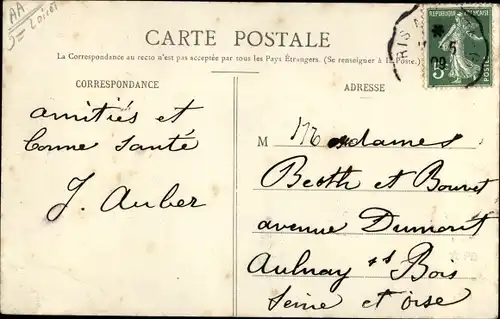 AA
CARTE POSTALE
La Correspondance au recto n'est pas acceptée par tous les Pays Étrangers. (Se renseigner à la Poste.)
CORRESPONDANCE
ADRESSE
amitiés et
bonne santé
J. Auber
M Mesdames
Berth et Bouvet
avenue Dumont
Aulnay s/s Bois
Seine et Oise
RÉPUBLIQUE FRANÇAISE
5
09